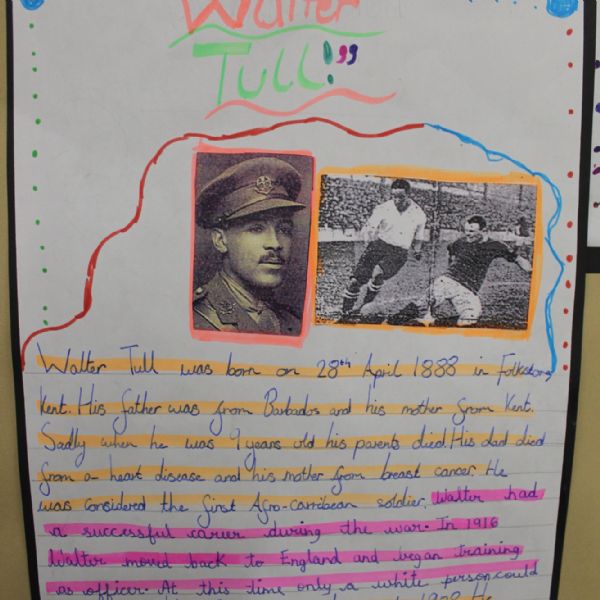 Walter
Tull!"
Walter Tull was born on 28th April 1888 in Folkstone,
Kent. His father was from Barbados and his mother from Kent.
Sadly when he was 9 years old his parents died. His dad died
from a heart disease and his mother from breast cancer. He
was considered the first Afro-carribean soldier. Walter had
a successful career during the war. In 1916
Walter moved back to England and began training
as officer. At this time only a white person could
1908. He